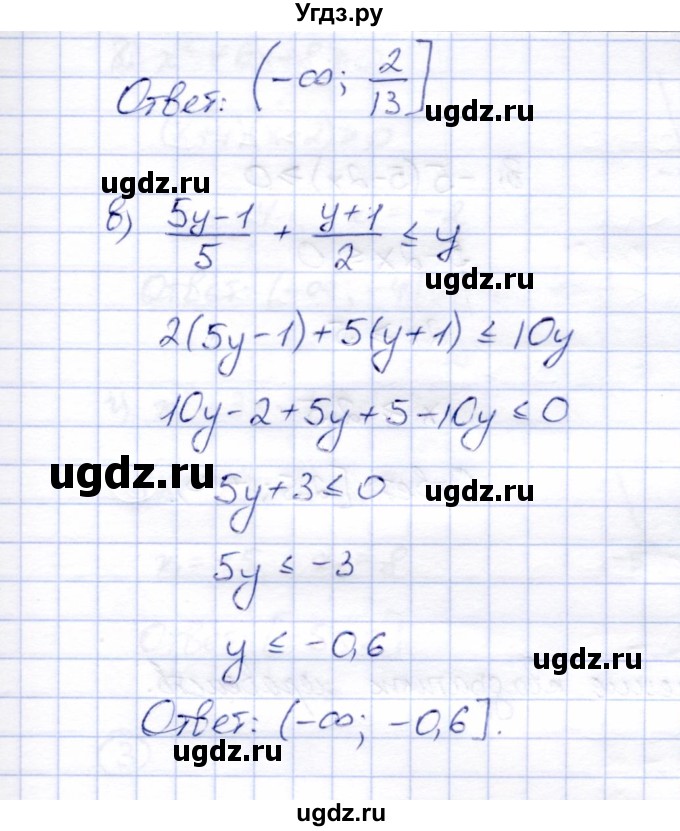 Угдз.ру
Ответ: (-∞; 2/13]
ugdz.ru
ugdz.ru
в) (5y-1)/5 + (y+1)/2 ≤ y
ugdz.ru
2(5y-1)+5(y+1) ≤ 10y
10y-2+5y+5-10y ≤ 0
ugdz.ru
5y+3 ≤ 0
ugdz.ru
5y ≤ -3
y ≤ -0,6
ugdz.ru
Ответ: (-∞; -0,6].
ugdz.ru
ugdz.ru